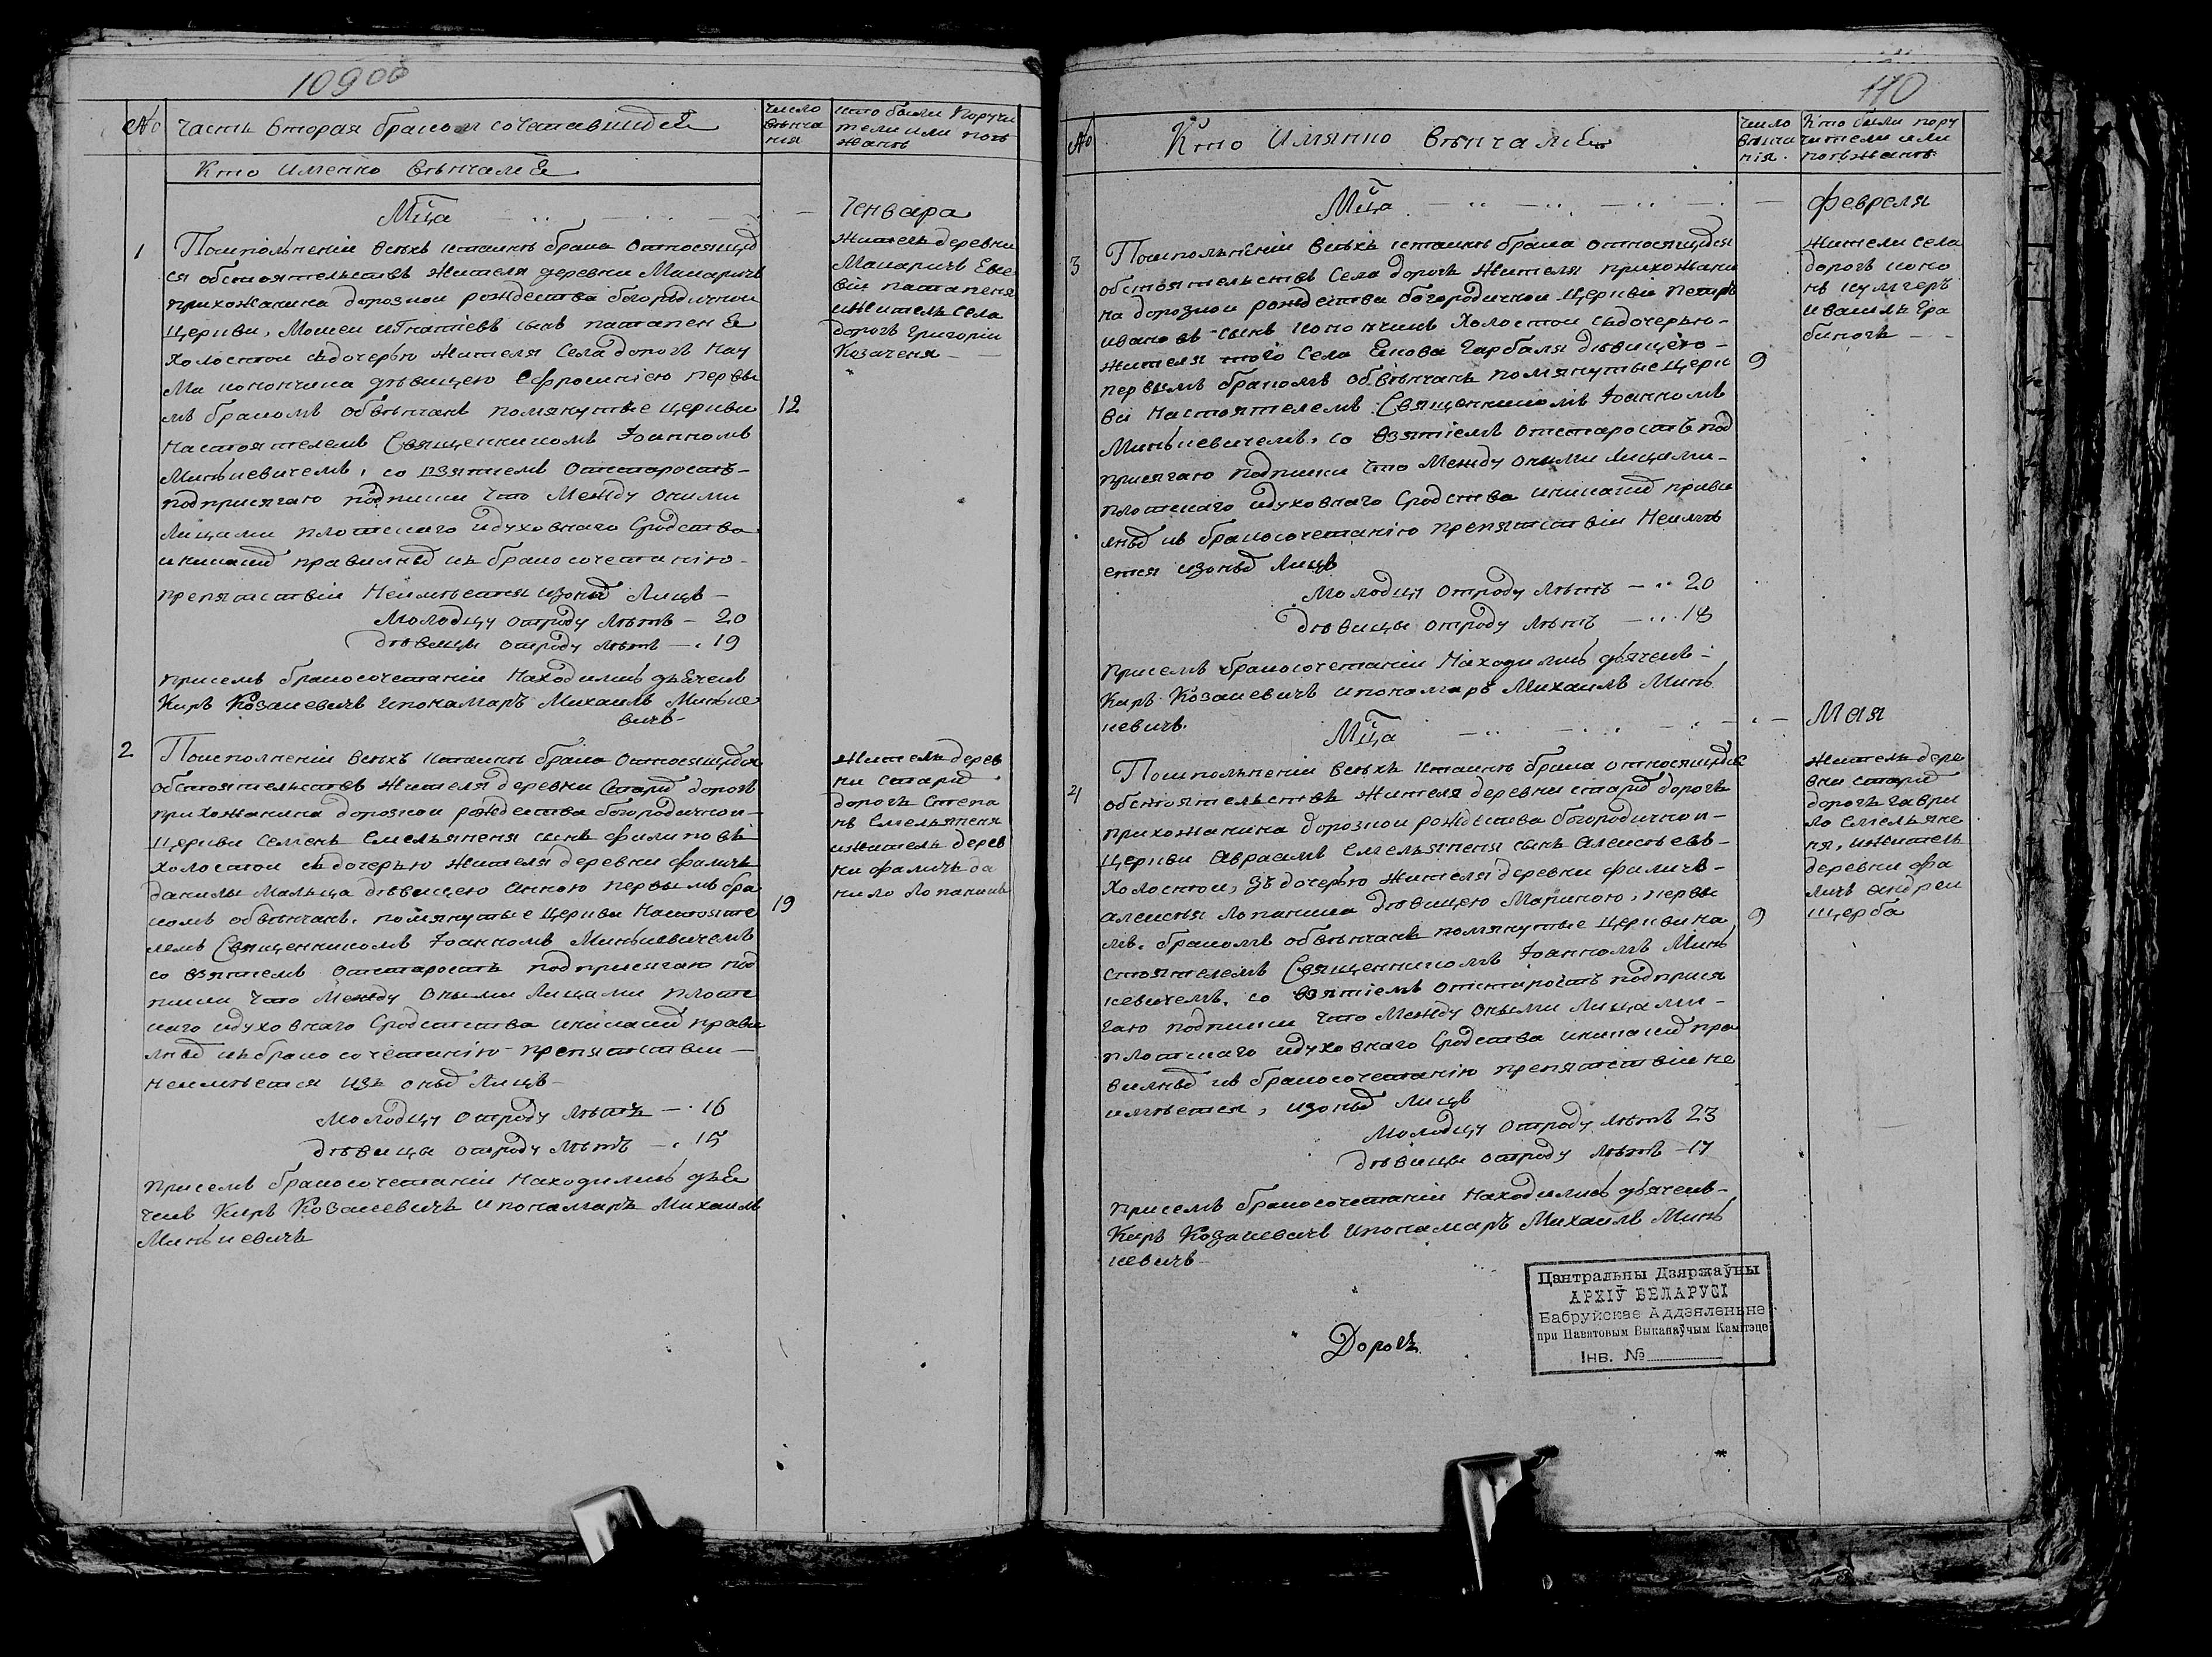 109об
№
Часть вторая браком сочетавшихся
Число
венча
ния
кто были Поручи
тели или поѣ
жанѣ
Кто именно вѣнчался
Мца
Генваря
1
По исполненіи всѣхъ ктаинѣ брака относящих
ся обстоятельствъ жителя деревни Макаричъ
прихожанина дорозкои рождества богородичнои
Церкви, Мойсеи Игнатіевъ сынъ патапеня
холостои сдочерью жителя Села дорогъ Нау
ма конончика дѣвицею Ефросиніею первы
мъ бракомъ обвѣнчанъ помянутые церкви
Настоятелемъ Священникомъ Іоанномъ
Минькевичемъ, со взятіемъ отстаростъ
подприсягаю подписки что Между оными
Лицами плотскаго идуховнаго Сродства
иникакихъ правилныхъ къ бракосочетанію
препятствіи Неимѣется изоныхъ Лицъ
12
Молодцу отроду лѣтъ - 20
дѣвицы отроду лѣтъ - 19
Присемъ бракосочетаніи Находились дьячекъ
Киръ Козакевичъ ипонамаръ Михаилъ Минкѣ
вичъ
Житель деревни
Макаричъ Евсе
віи патапеня
ижитель села
дорогъ Григоріи
Козаченя
2
По исполненіи всѣхъ ктаинѣ брака относящихся
обстоятельствъ жителя деревни Старыхъ дорогъ
прихожанина дорозкои рождества богородичнои
Церкви Семенъ Емельяненя сынъ филиповъ
холостои сдочерью жителя деревни фаличъ
данилы Мальца дѣвицею анною первымъ бра
комъ обвѣнчанъ, помянутые Церкви Настояте
лемъ Священникомъ Іоанномъ Минькевичемъ
со взятіемъ отстаростъ подприсягаю под
писки что Между оными Лицами плотс
каго идуховнаго Сродства иникакихъ прави
лныхъ къ бракосочетанію препятствіи
Неимѣется изъ оныхъ Лицъ
19
Молодцу отроду лѣтъ - 16
дѣвицы отроду лѣтъ - 15
Присемъ бракосочетаніи Находились дья
чекъ Киръ Козакевичъ ипонамаръ Михаилъ
Минькевичъ
Житель дерев
ни старыхъ
дорогъ Степа
нъ Емельяненя
ижитель дерев
ни фаличъ да
нило Лопаникъ
110
№
Кто Имянно вѣнчался
Число
вѣнча
нія
Кто были пору
чители или
поѣжанѣ
Мца
февраля
3
По исполненіи всѣхъ ктаинѣ брака относящихся
обстоятельствъ Села дорогъ жителя прихожани
на дорозкои рождества богородичнои Церкви Петръ
ивановъ сынъ конончикъ холостои сдочерью
жителя того Села Якова Гарбаля дѣвицею
первымъ бракомъ обвѣнчанъ помянутые Церк
ви Настоятелемъ Священникомъ Іоанномъ
Минькевичемъ, со взятіемъ отстаростъ под
присягаю подписки что Между оными Лицами
плотскаго идуховнаго Сродства иникакихъ прави
лныхъ къ бракосочетанію препятствіи Неимѣ
ется изоныхъ Лицъ
9
Молодцу отроду лѣтъ - 20
дѣвицы отроду лѣтъ - 18
Присемъ бракосочетаніи Находились дьячекъ
Киръ Козакевичъ ипонамаръ Михаилъ Минь
кевичъ.
Жители села
дорогъ коно
нъ кумгеръ
и
Мца
Мая
4
По исполненіи всѣхъ ктаинѣ брака относящихся
обстоятельствъ жителя деревни старыхъ дорогъ
прихожанина дорозкои рождества богородичнои
Церкви Авраамъ Емельяненя сынъ Алексѣевъ
холостои, зъдочерью жителя деревни фаличъ
алексѣя Лопаника дѣвицею Мариною, первы
мъ бракомъ обвѣнчанъ помянутые Церкви На
стоятелемъ Священникомъ Іоанномъ Минь
кевичемъ, со взятіемъ отстаростъ подприся
гаю подписки что Между оными Лицами
плотскаго идуховнаго Сродства иникакихъ пра
вилныхъ къ бракосочетанію препятствіи Не
имѣется, изоныхъ Лицъ
9
Молодцу отроду лѣтъ 23
дѣвицы отроду лѣтъ - 17
Присемъ бракосочетаніи Находились дьячекъ
Киръ Козакевичъ ипонамаръ Михаилъ Минь
кевичъ
Житель дере
вни старыхъ
дорогъ гаври
ло Емельяне
ня, ижитель
деревни фа
личъ андреи
щерба
Дорогъ
Цэнтральны Дзяржаўны
АРХІЎ БЕЛАРУСІ
Бабруйскае Аддзяленьне
при Павятовым Выканаўчым Камітэце
Інв. №